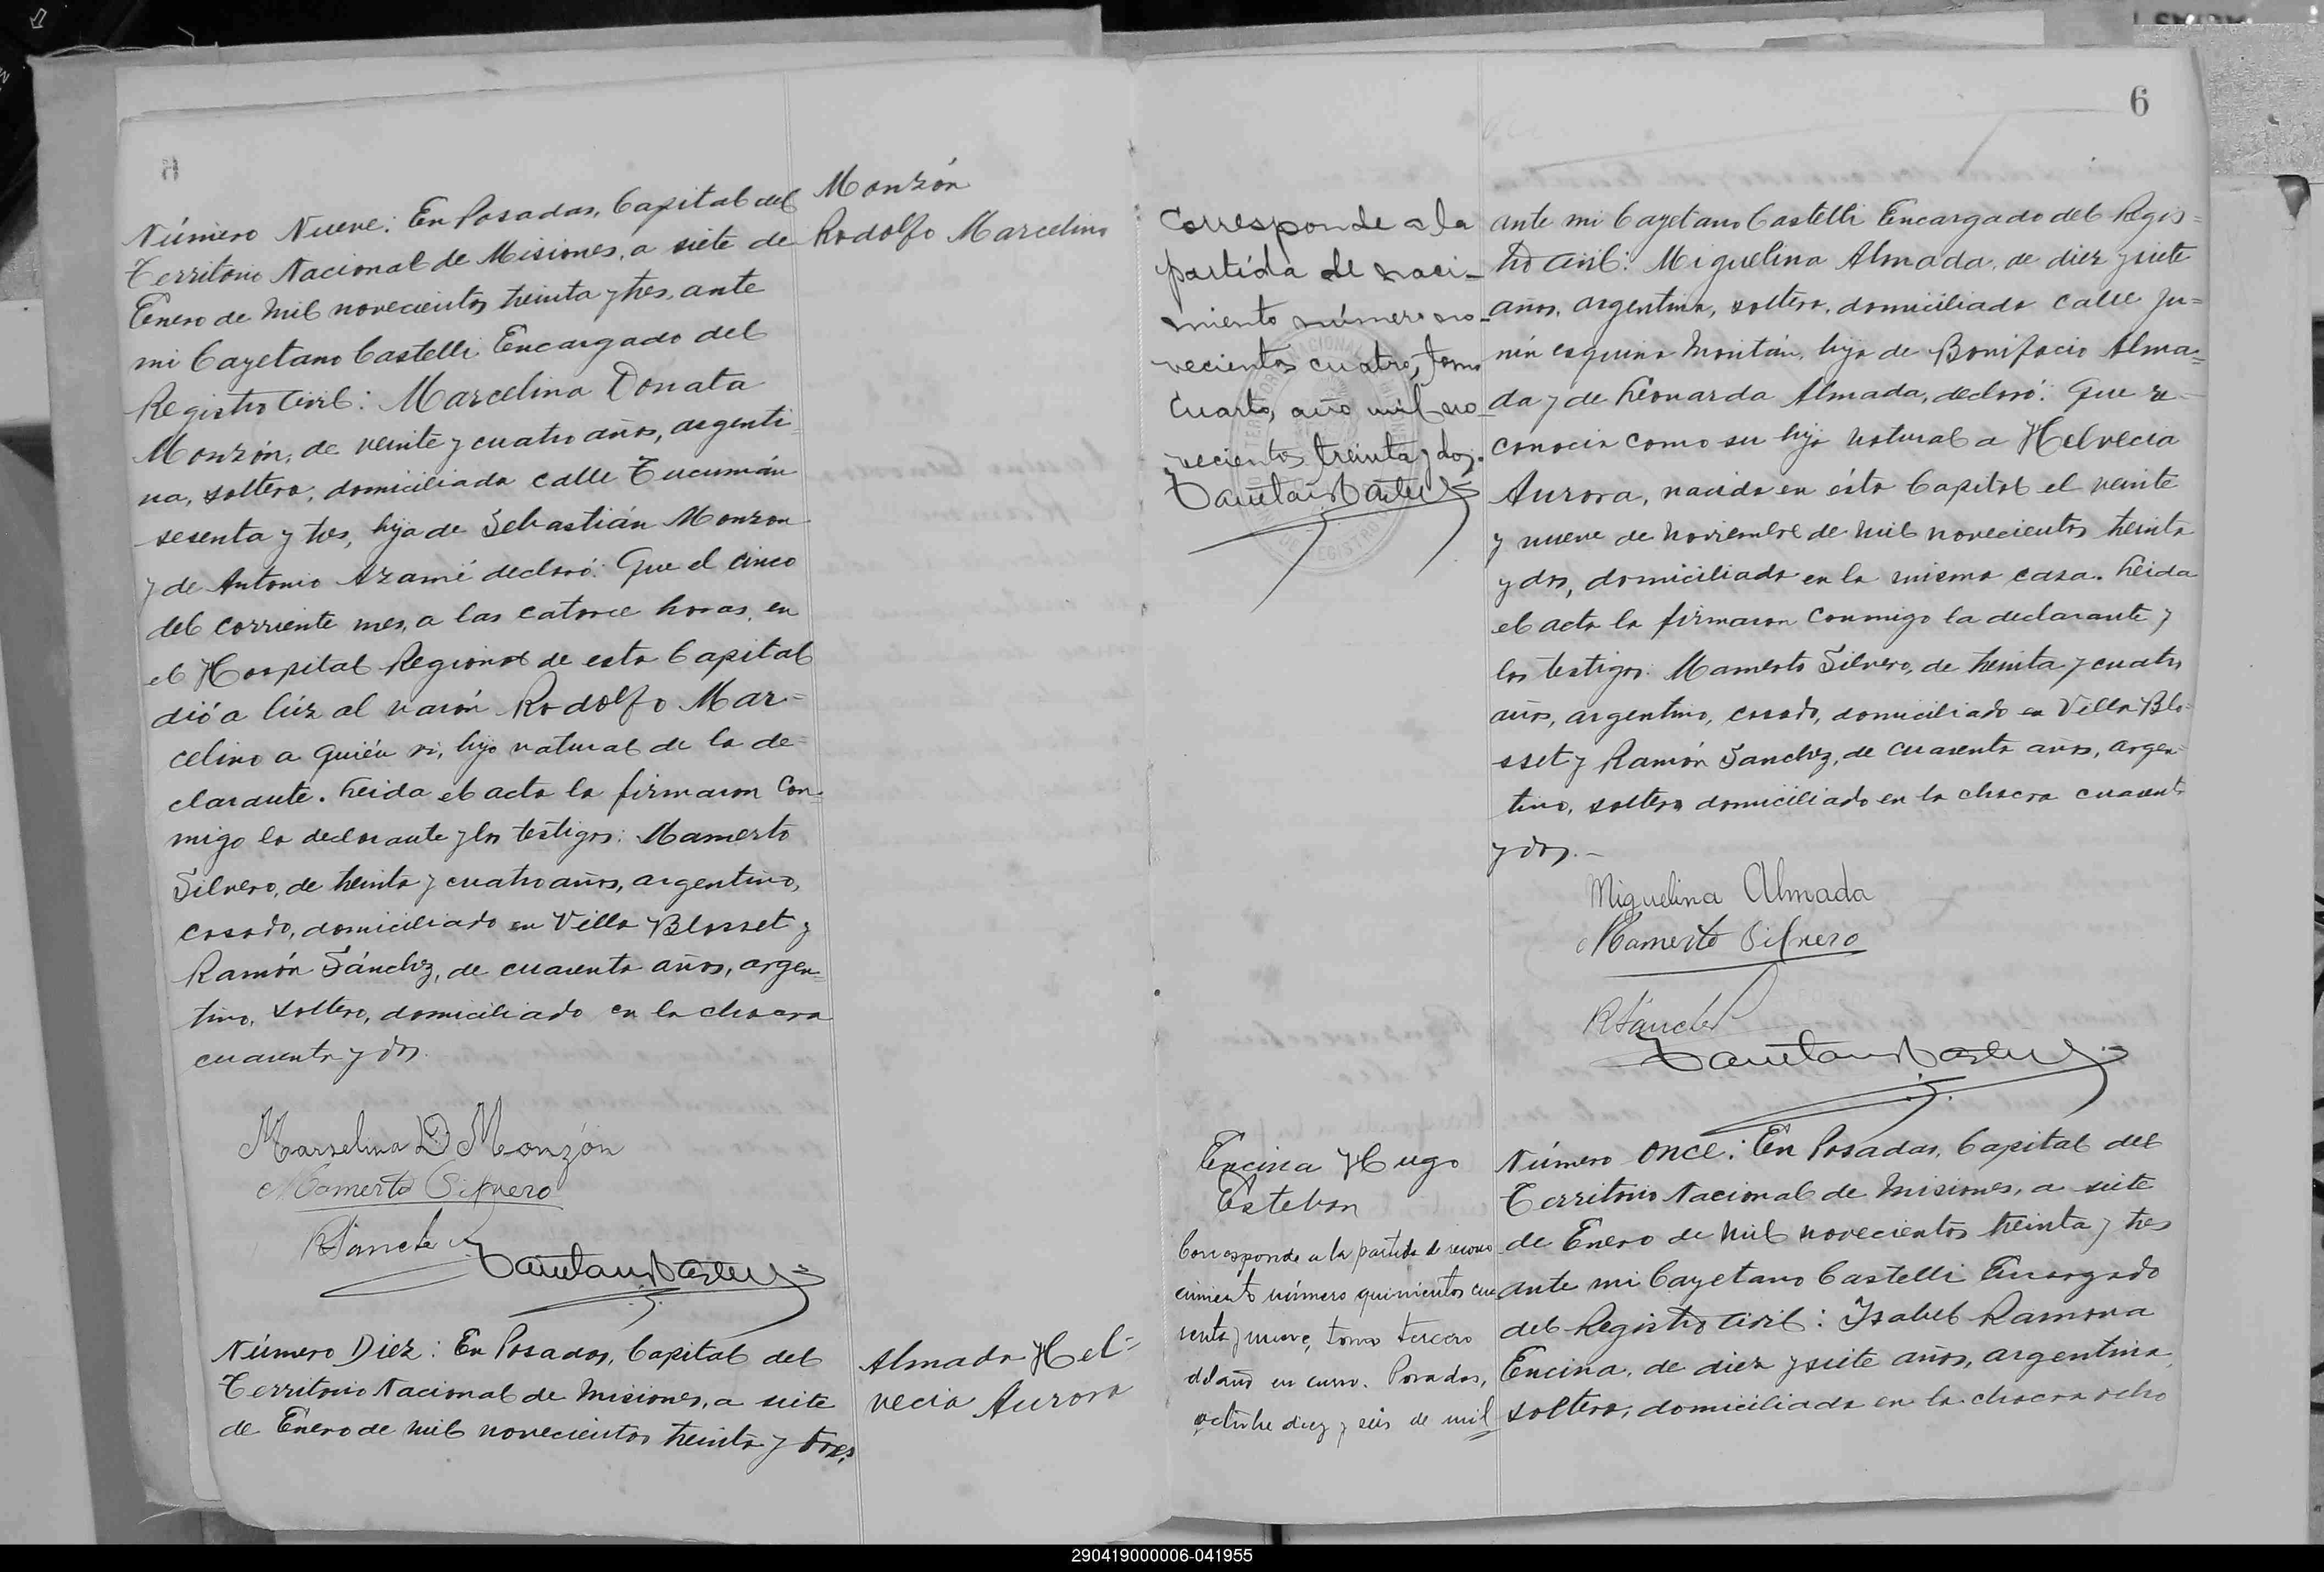 Monzón
Rodolfo Marcelino
Número Nueve: En Posadas, Capital del
Territorio Nacional de Misiones, a siete de
Enero de mil novecientos treinta y tres, ante
mi Cayetano Castelli Encargado del
Registro Civil: Marcelina Donata
Monzón, de veinte y cuatro años, argenti
na, soltera, domiciliada calle Tucumán
sesenta y tres, hija de Sebastián Monzon
y de Antonia Azamé declaró: Que el cinco
del corriente mes, a las catorce horas, en
el Hospital Regional de esta Capital
dió a lúz al varón Rodolfo Mar=
celino a quién vi, hijo natural de la de=
clarante. Leida el acta la firmaron Con-
migo la declarante y los testigos: Mamerto
Silvero, de treinta y cuatro años, argentino,
casado, domiciliado en Villa Blosset y
Ramón Sánchez, de cuarenta años, argen=
tino, soltero, domiciliado en la chacra
cuarenta y dos.
Marselina D Monzón
Mamerto Silvero
R Sanche
Número Diez: En Posadas, Capital del
Territorio Nacional de Misiones, a siete
de Enero de mil novecientos treinta y tres,
Almada Hel=
vecia Aurora
6
Corresponde a la
partida de naci-
miento número no-
vecientos cuatro, tomo
cuarto, año mil no-
vecientos treinta y dos.
ante mi Cayetano Castelli Encargado del Regis=
tro Civil: Miguelina Almada, de diez y siete
años, argentina, soltera, domiciliada calle Ju=
nín esquina Montán, hija de Bonifacio Alma=
da y de Leonarda Almada, declaró: Que re-
conocia como su hija natural a Helvecia
Aurora, nacida en ésta Capital el veinte
y nueve de Noviembre de mil novecientos treinta
y dos, domiciliada en la misma casa. Leida
el acta la firmaron conmigo la declarante y
los testigos: Mamerto Silvero, de treinta y cuatro
años, argentino, casado, domiciliado en Villa Blo-
sset y Ramón Sanchez, de cuarenta años, argen=
tino, soltero domiciliado en la chacra cuarenta
y dos.-
Miguelina Almada
Mamerto Silvero
R Sanche
Encina Hugo
Esteban
Corresponde a la partida de recono
cimiento número quinientos cua
renta y nueve, tomo tercero
del año en curso. Posadas,
octubre diez y seis de mil
Número Once: En Posadas, Capital del
Territorio Nacional de Misiones, a siete
de Enero de mil novecientos treinta y tres
ante mi Cayetano Castelli Encargado
del Registro Civil: Ysabel Ramona
Encina, de diez y siete años, argentina,
soltera, domiciliada en la chacra ocho
290419000006-041955